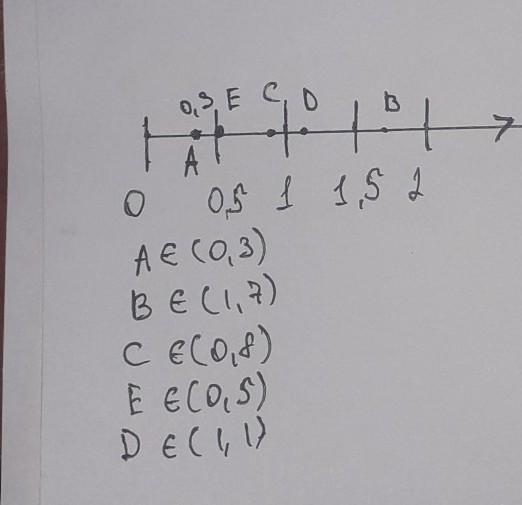 0,3 E C D B
A
0 0,5 1 1,5 2
A ∈ (0,3)
B ∈ (1,7)
C ∈ (0,8)
E ∈ (0,5)
D ∈ (1,1)